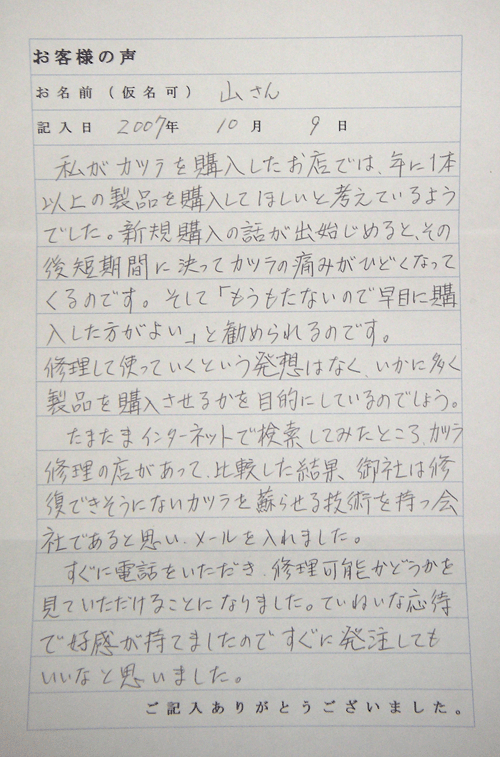 お客様の声
お名前(仮名可) 山さん
記入日 2007年 10月 9日
私がカツラを購入したお店では、年に1本
以上の製品を購入してほしいと考えているよう
でした。新規購入の話が出始めると、その
後短期間に決ってカツラの痛みがひどくなって
くるのです。そして「もうもたないので早目に購
入した方がよい」と勧められるのです。
修理して使っていくという発想はなく、いかに多く
製品を購入させるかを目的にしているのでしょう。
たまたまインターネットで検索してみたところ、カツラ
修理の店があって、比較した結果、御社は修
復できそうにないカツラを蘇らせる技術を持つ会
社であると思い、メールを入れました。
すぐに電話をいただき、修理可能かどうかを
見ていただけることになりました。ていねいな応待
で好感が持てましたのですぐに発注しても
いいなと思いました。
ご記入ありがとうございました。